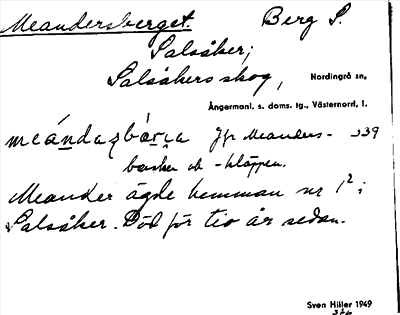 Meandersberget. Berg S.
Salsåker,
Salsåkers skog, Nordingrå sn,
Ångermanl. s. doms. tg., Västernord. l.
Jfr Meanders- 339
backen och -kläppen.
Meander ägde hemman nr 1² i
Salsåker. Död för tio år sedan.
Sven Hiller 1949